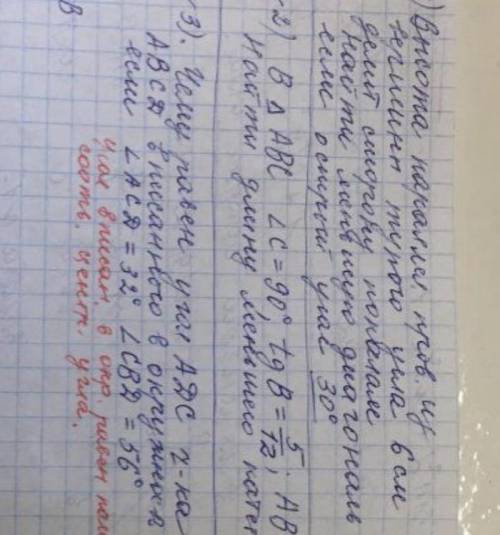 ) Высота паралл. пров. из
вершины тупого угла 6 см
делит сторону пополам
Найти меньшую диагональ
если острый угол 30°
2) В Δ ABC ∠C = 90° tg B = 5/12; AB
Найти длину меньшего катет
3). Чему равен угол ADC 4-ка
ABCD вписанного в окружн
если ∠ACD = 32° ∠CBD = 56°
угол вписан. в окр. равен пол
соотв. центр. угла.
В